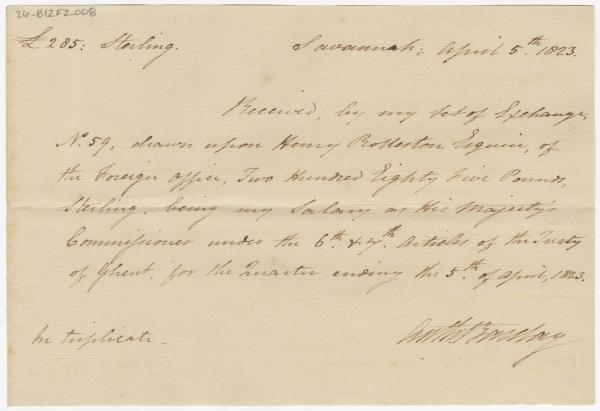 26-B12F2.008
£285: Sterling. Savannah: April 5.th 1823.
Received, by my Set of Exchange,
No. 59, drawn upon Henry Rolleston Esquire, of
the Foreign Office, Two Hundred Eighty Five Pounds,
Sterling, being my Salary as His Majesty's
Commissioner under the 6th. & 7th. Articles of the Treaty
of Ghent, for the Quarter ending the 5.th of April, 1823.
Anth. Barclay
In triplicate.